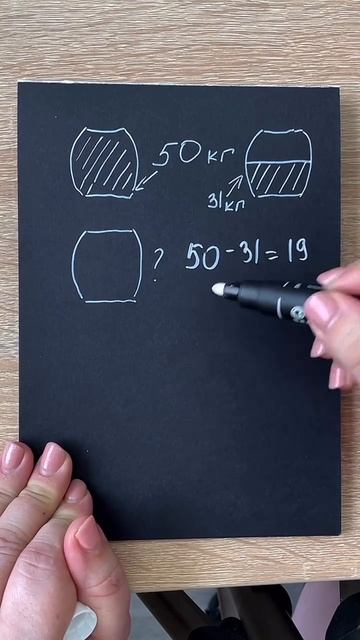 50 кг
31 кг
? 50 - 31 = 19